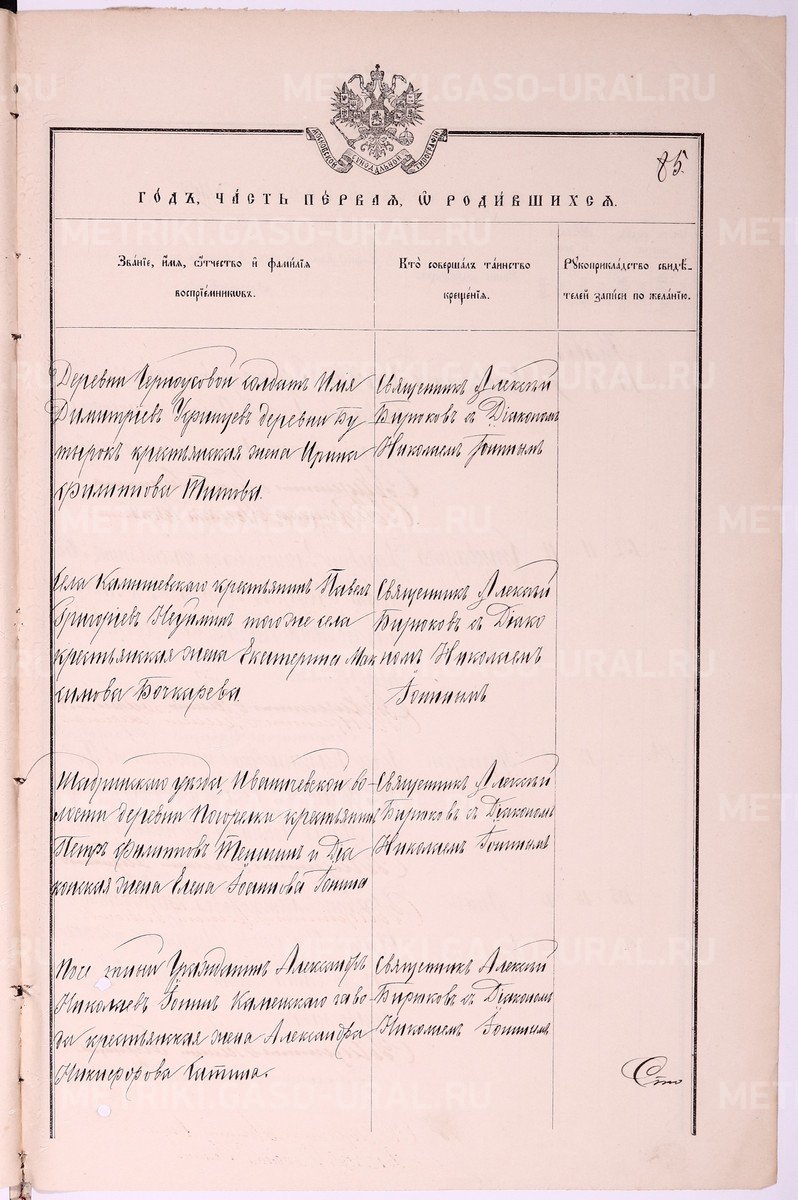 МОСКОВСКОЙ СѴНОДАЛЬНОЙ ТИПОГРАФІИ
85.
ГО́ДЪ, ЧА́СТЬ ПЕ́РВАЯ, Ѿ РОДИ́ВШИХСЯ.
Зва́нїе, и҆́мя, ѻ҆́тчество и҆ фами́лїя
воспрїе́мникѡвъ.
Кто̀ соверша́лъ та́инство
креще́нїя.
Рꙋкоприкла́дство свидѣ́-
телей за́писи по жела́нїю.
Деревни Черноусовой солдатъ Илія
Димитріевъ деревни Бу
тырокъ крестьянская жена Ирина
Филиппова Титова.
Священникъ Алексѣй
Бирюковъ съ Діакономъ
Николаемъ Топинымъ
Села Камышевскаго крестьянинъ Павелъ
Григоріевъ Неуиминъ тогоже села
крестьянская жена Екатерина Мак
симова Бочкарева.
Священникъ Алексѣй
Бирюковъ съ Діако
номъ Николаемъ
Топинымъ
Шадринскаго уѣзда, Иванищевской во-
лости деревни Погорѣлки крестьянинъ
Петръ Филипповъ и Діа
конская жена Елена Топина
Священникъ Алексѣй
Бирюковъ съ Діакономъ
Николаемъ Топинымъ
Гражданинъ Александръ
Николаевъ Топинъ Каменскаго заво
да крестьянская жена Александра
Никифорова
Священникъ Алексѣй
Бирюковъ съ Діакономъ
Николаемъ Топинымъ
Сто
METRIKI.GASO-URAL.RU